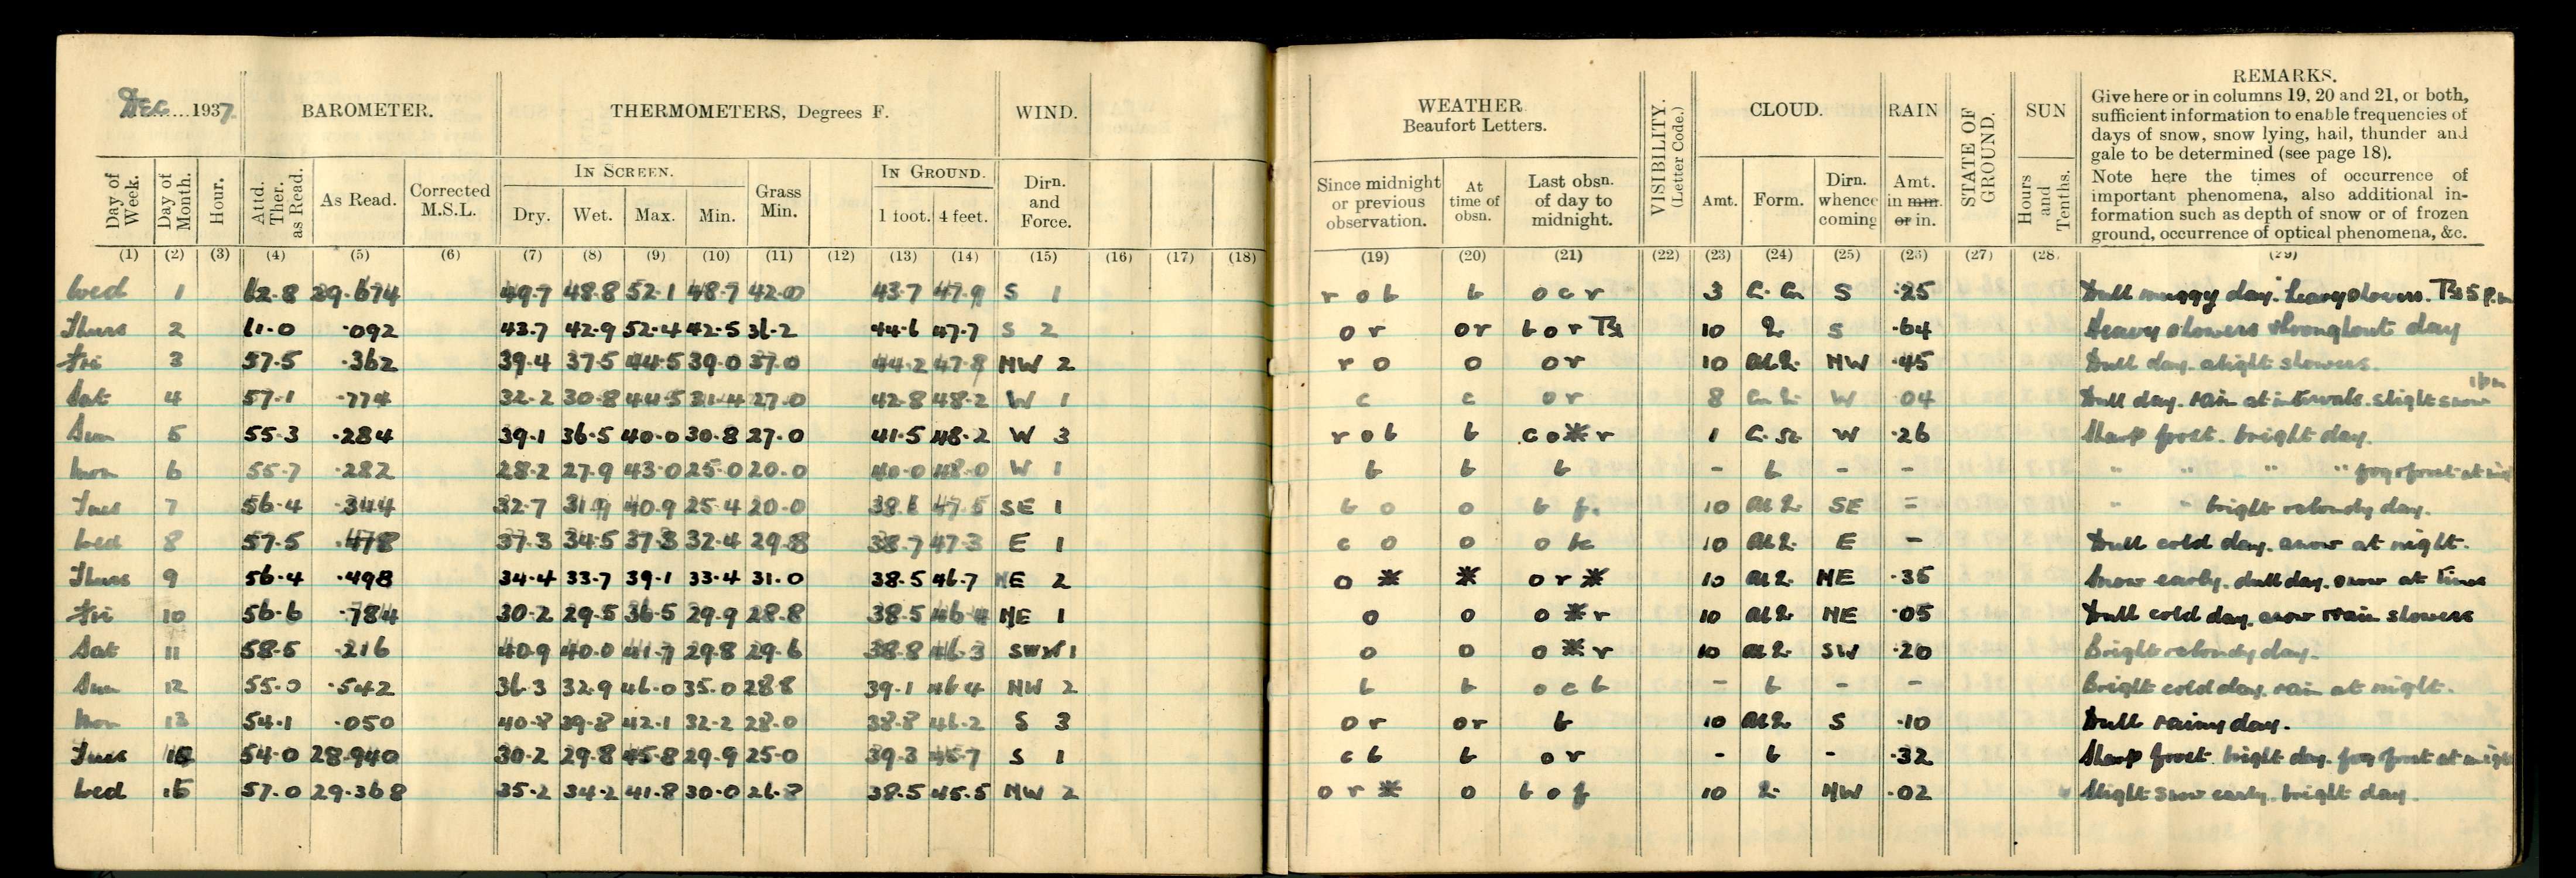 DEC 1937.
BAROMETER.
THERMOMETERS, Degrees F.
WIND.
Day of Week.
Day of Month.
Hour.
Attd. Ther. as Read.
As Read.
Corrected M.S.L.
IN SCREEN.
Dry. Wet. Max. Min.
Grass Min.
IN GROUND.
1 foot. 4 feet.
Dirn. and Force.
(1) (2) (3) (4) (5) (6) (7) (8) (9) (10) (11) (12) (13) (14) (15) (16) (17) (18)
Wed 1 62.8 29.674 49.7 48.8 52.1 48.7 42.0 43.7 47.9 S 1
Thurs 2 61.0 .092 43.7 42.9 52.4 42.5 36.2 44.6 47.7 S 2
Fri 3 57.5 .362 39.4 37.5 44.5 39.0 37.0 44.2 47.8 NW 2
Sat 4 57.1 .774 32.2 30.8 44.5 31.4 27.0 42.8 48.2 W 1
Sun 5 55.3 .284 39.1 36.5 40.0 30.8 27.0 41.5 48.2 W 3
Mon 6 55.7 .282 28.2 27.9 43.0 25.0 20.0 40.0 48.0 W 1
Tues 7 56.4 .344 32.7 31.9 40.9 25.4 20.0 38.6 47.5 SE 1
Wed 8 57.5 .478 37.3 34.5 37.3 32.4 29.8 38.7 47.3 E 1
Thurs 9 56.4 .498 34.4 33.7 39.1 33.4 31.0 38.5 46.7 NE 2
Fri 10 56.6 .784 30.2 29.5 36.5 29.9 28.8 38.5 46.4 NE 1
Sat 11 58.5 .216 40.9 40.0 41.7 29.8 29.6 38.8 46.3 SW 1
Sun 12 55.0 .542 36.3 32.9 46.0 35.0 28.8 39.1 46.4 NW 2
Mon 13 54.1 .050 40.8 39.8 42.1 32.2 28.0 38.8 46.2 S 3
Tues 54.0 28.940 30.2 29.8 45.8 29.9 25.0 39.3 45.7 S 1
Wed 15 57.0 29.368 35.2 34.2 41.8 30.0 26.8 38.5 45.5 NW 2
WEATHER
Beaufort Letters.
VISIBILITY.
(Letter Code.)
CLOUD.
RAIN
STATE OF GROUND.
SUN
REMARKS.
Give here or in columns 19, 20 and 21, or both,
sufficient information to enable frequencies of
days of snow, snow lying, hail, thunder and
gale to be determined (see page 18).
Note here the times of occurrence of
important phenomena, also additional in-
formation such as depth of snow or of frozen
ground, occurrence of optical phenomena, &c.
Since midnight or previous observation.
At time of obsn.
Last obsn. of day to midnight.
Amt. Form.
Dirn. whence coming
Amt. in mm. or in.
Hours and Tenths.
(19) (20) (21) (22) (23) (24) (25) (26) (27) (28. (29)
r o b b o c r 3 S .25 Dull muggy day. heavy showers. 5 p.m
o r o r b o r 10 S .64 Heavy showers throughout day
r o o o r 10 NW .45 Dull day. slight showers.
c c o r 8 W .04 Dull day. rain at intervals. slight snow
r o b b c o * r 1 W .26 Sharp frost. bright day.
b b b - b - - " " " " fog & frost at
b o o b f. 10 SE = " " bright & cloudy day.
c o o o 10 E - Dull cold day. snow at night.
o * * o r * 10 NE .35 Snow early. dull day. snow at times
o o o * r 10 NE .05 Dull cold day. snow & rain showers
o o o * r 10 SW .20 Bright & cloudy day.
b b o c b - b - - Bright cold day. rain at night.
o r o r b 10 S .10 Dull rainy day.
c b b o r - b - .32 Sharp frost. bright day. fog frost at night
o r * o b o f 10 NW .02 Slight snow early. bright day.